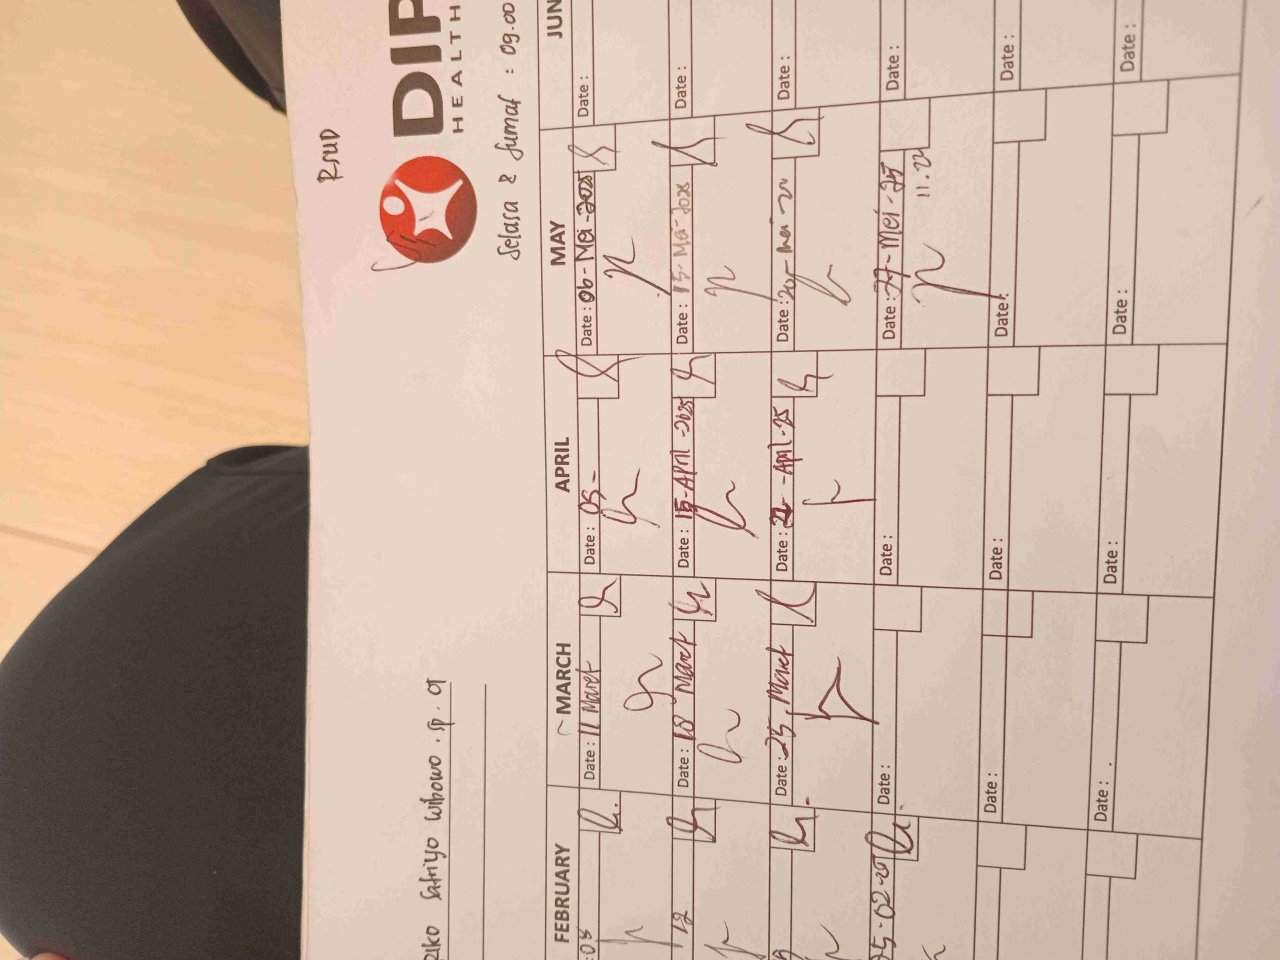 RSUD
DIP
HEALTH
Selasa & Jumat : 09.00
Satriyo Wibowo . sp . OT
FEBRUARY MARCH APRIL MAY JUN
05 Date : 11 Maret Date : 05 - Date : 06 - Mei - 2025 Date :
12 Date : 18 Maret Date : 15 - April - 2025 Date : 15 - Mei - 2025 Date :
Date : 25, Maret Date : 22 - April - 25 Date : Date :
25 - 02 - 25 Date : Date : Date : 27 - Mei - 25 Date :
11.22
Date : Date : Date : Date :
Date : Date : Date : Date :